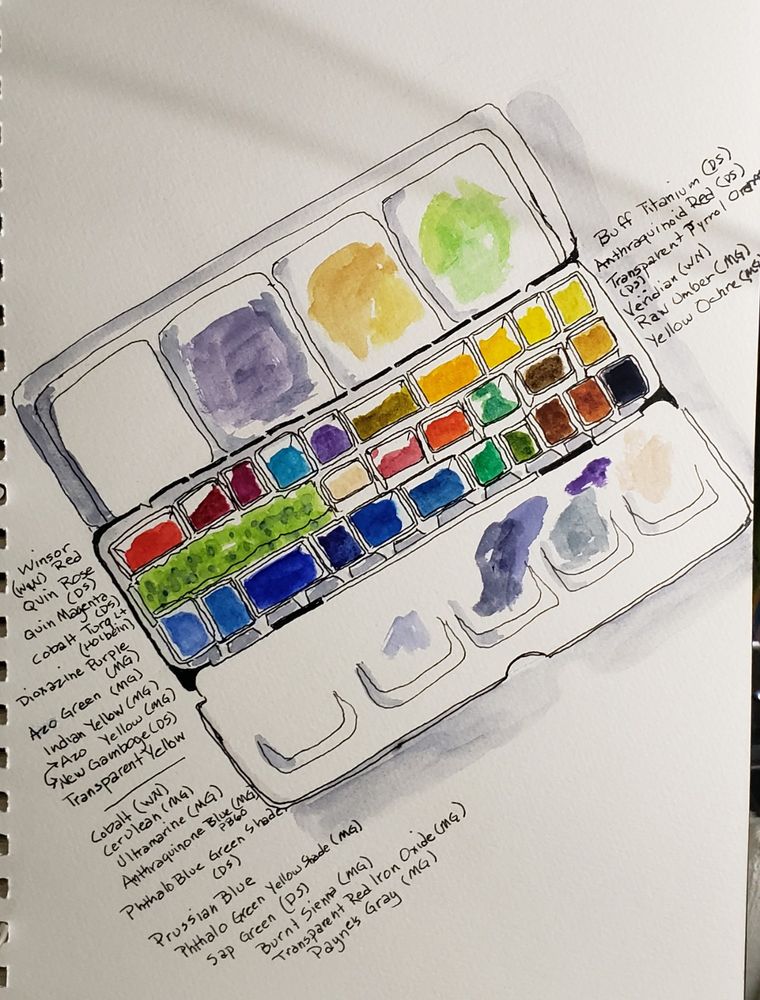 Buff Titanium (DS)
Anthraquinoid Red (DS)
Transparent Pyrrol Orange
(DS)
Viridian (WN)
Raw Umber (MG)
Yellow Ochre (MG)
Winsor
(W&N) Red
Quin Rose
(DS)
Quin Magenta
(DS)
Cobalt Turq Lt
(Holbein)
Dioxazine Purple
(MG)
Azo Green (MG)
Indian Yellow (MG)
→Azo Yellow (MG)
New Gamboge (DS)
Transparent Yellow
Cobalt (WN)
Cerulean (MG)
Ultramarine (MG)
Anthraquinone Blue (MG)
PB60
Phthalo Blue Green Shade
(DS)
Prussian Blue
Phthalo Green Yellow Shade (MG)
Sap Green (DS)
Burnt Sienna (MG)
Transparent Red Iron Oxide (MG)
Payne's Gray (MG)